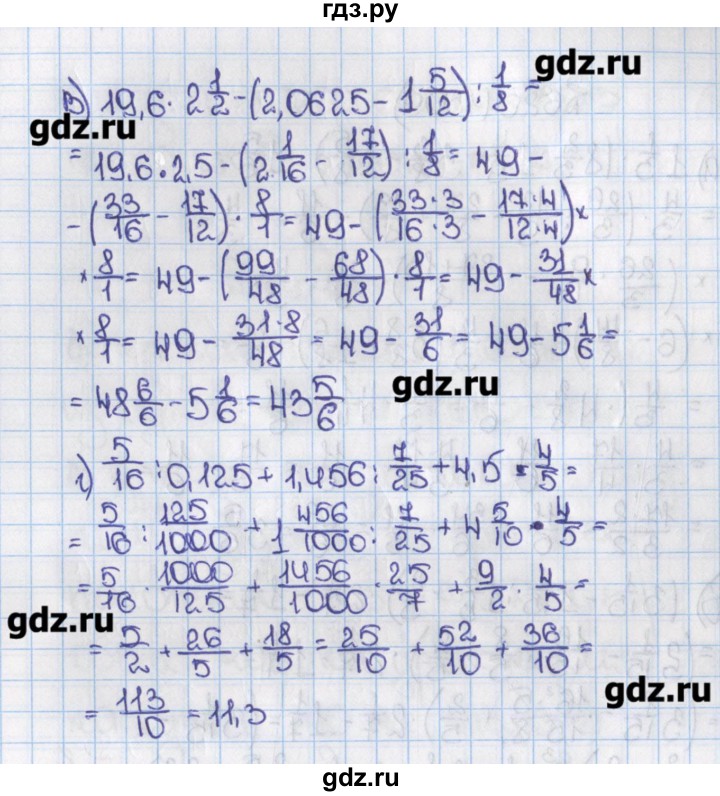 гдз.ру
в) 19,6 · 2 1/2 - (2,0625 - 1 5/12) : 1/8 =
gdz.ru
gdz.ru
= 19,6 · 2,5 - (2 1/16 - 17/12) : 1/8 = 49 -
- (33/16 - 17/12) · 8/1 = 49 - (33·3/16·3 - 17·4/12·4) ×
× 8/1 = 49 - (99/48 - 68/48) · 8/1 = 49 - 31/48 ×
× 8/1 = 49 - 31·8/48 = 49 - 31/6 = 49 - 5 1/6 =
= 48 6/6 - 5 1/6 = 43 5/6
gdz.ru
г) 5/16 : 0,125 + 1,456 : 7/25 + 4,5 · 4/5 =
= 5/16 : 125/1000 + 1 456/1000 : 7/25 + 4 5/10 · 4/5 =
= 5/16 · 1000/125 + 1456/1000 · 25/7 + 9/2 · 4/5 =
gdz.ru
= 5/2 + 26/5 + 18/5 = 25/10 + 52/10 + 36/10 =
gdz.ru
= 113/10 = 11,3
gdz.ru